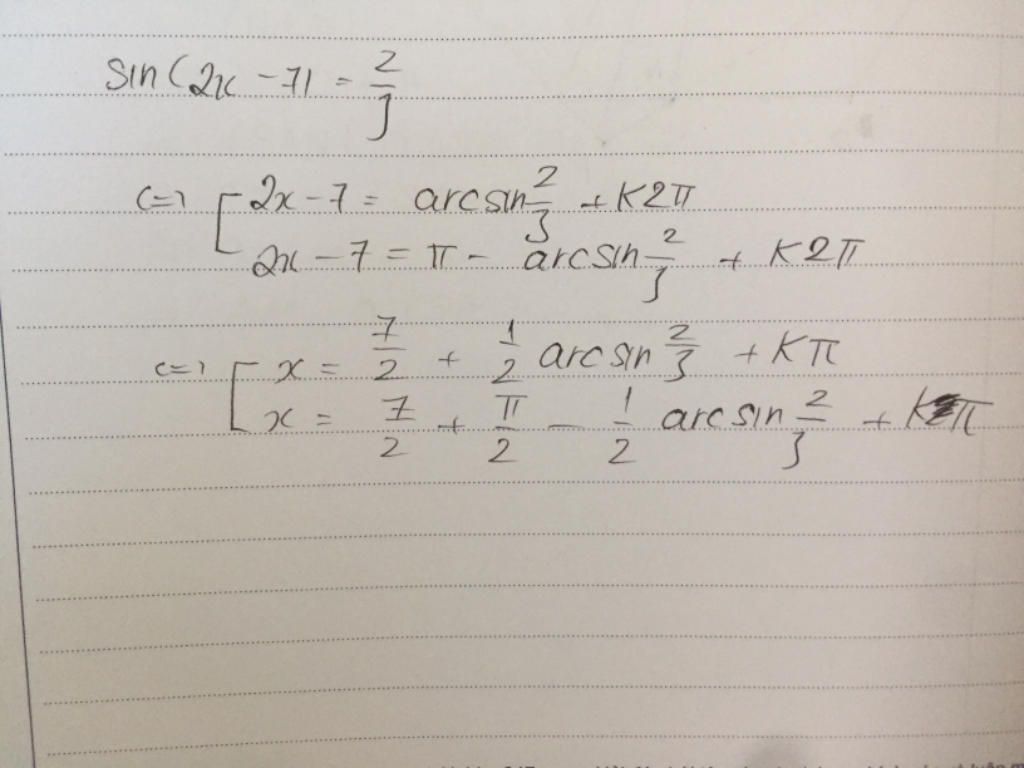 sin(2x - 7) = 2/3
<=> [ 2x - 7 = arcsin 2/3 + K2π
2x - 7 = π - arcsin 2/3 + K2π
<=> [ x = 7/2 + 1/2 arcsin 2/3 + Kπ
x = 7/2 + π/2 - 1/2 arcsin 2/3 + Kπ